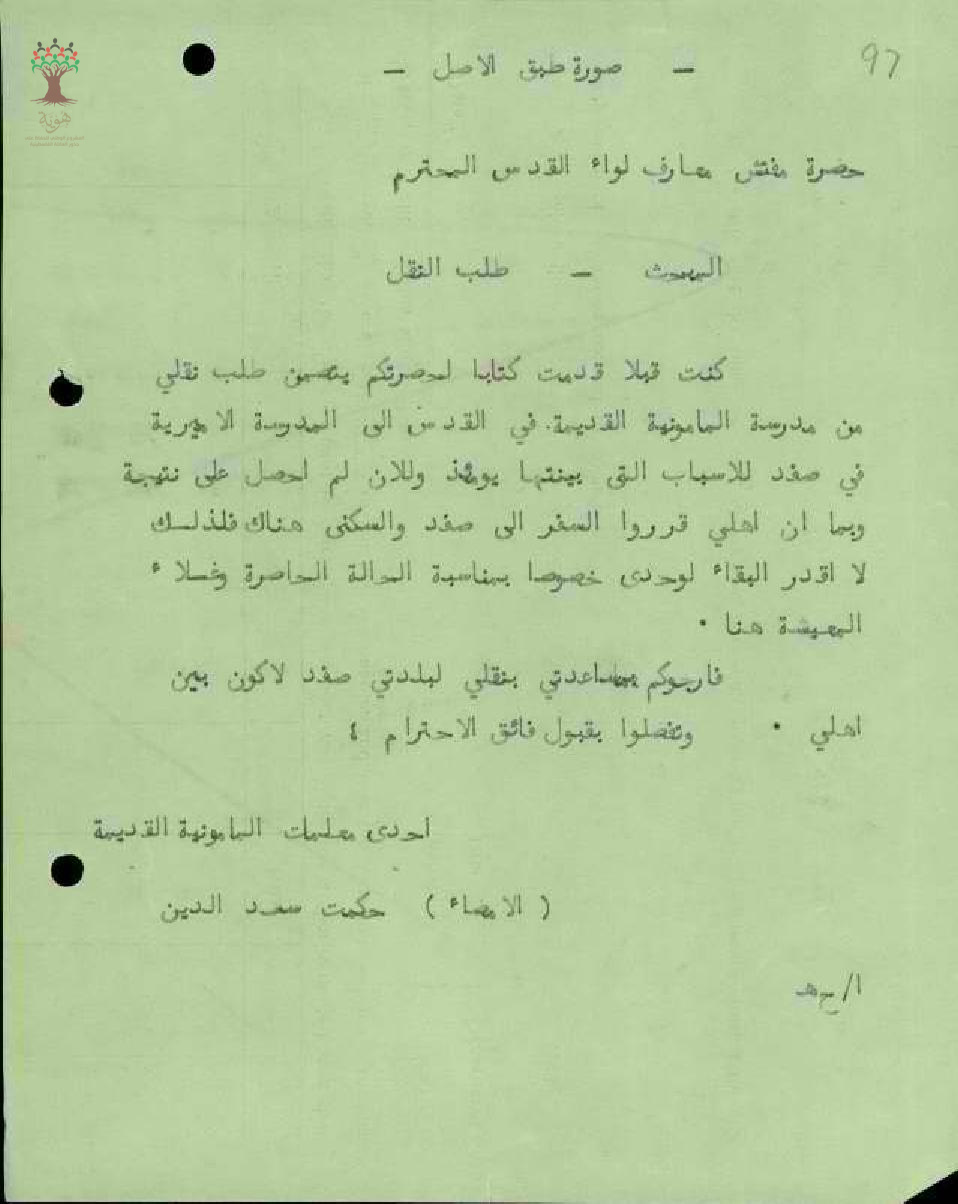 97
— صورة طبق الاصل —
هوية
حضرة مفتش معارف لواء القدس المحترم
البحث — طلب النقل
كنت قبلا قدمت كتابا لحضرتكم يتضمن طلب نقلي
من مدرسة المامونية القديمة في القدس الى المدرسة الاميرية
في صفد للاسباب التى بينتها يومئذ وللان لم احصل على نتيجة
وبما ان اهلي قرروا السفر الى صفد والسكنى هناك فلذلك
لا اقدر البقاء لوحدى خصوصا بمناسبة الحالة الحاضرة وغلاء
المعيشة هنا .
فارجوكم بمساعدتي بنقلي لبلدتي صفد لاكون بين
اهلي . وتفضلوا بقبول فائق الاحترام ؛
احدى معلمات المامونية القديمة
( الامضاء ) حكمت سعد الدين
ا/ح هـ